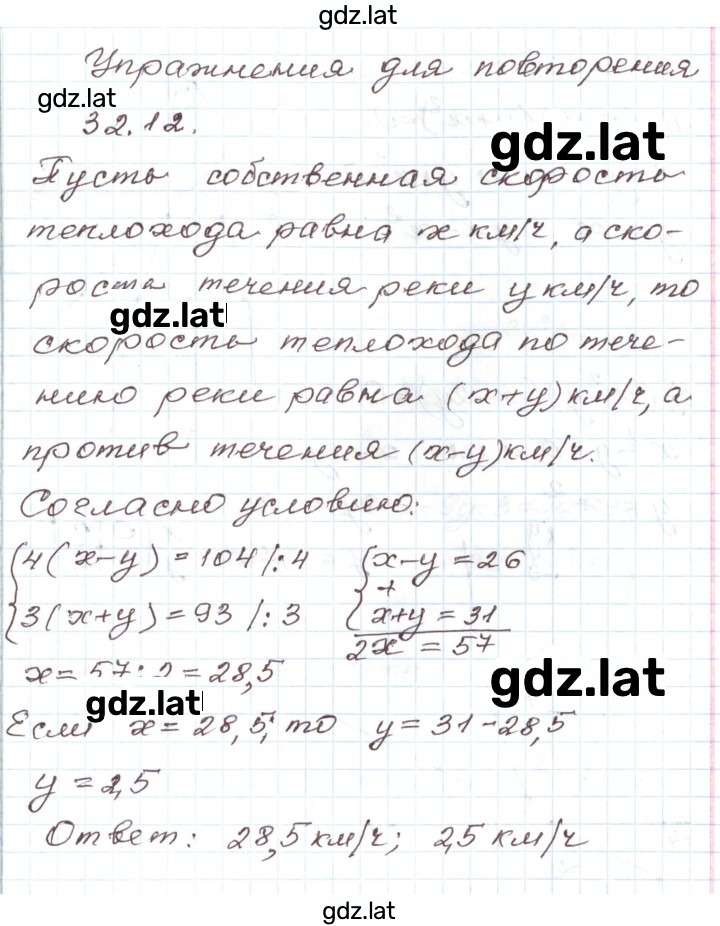 gdz.lat
Упражнения для повторения
gdz.lat
32.12.
gdz.lat
Пусть собственная скорость
теплохода равна x км/ч, а ско-
рость течения реки y км/ч, то
gdz.lat
скорость теплохода по тече-
нию реки равна (x+y) км/ч, а
против течения (x-y) км/ч.
Согласно условию:
{4(x-y) = 104 /:4 {x-y = 26
+
{3(x+y) = 93 /:3 {x+y = 31
2x = 57
x = 57:2 = 28,5
gdz.lat
gdz.lat
Если x = 28,5, то y = 31-28,5
y = 2,5
Ответ: 28,5 км/ч; 2,5 км/ч
gdz.lat